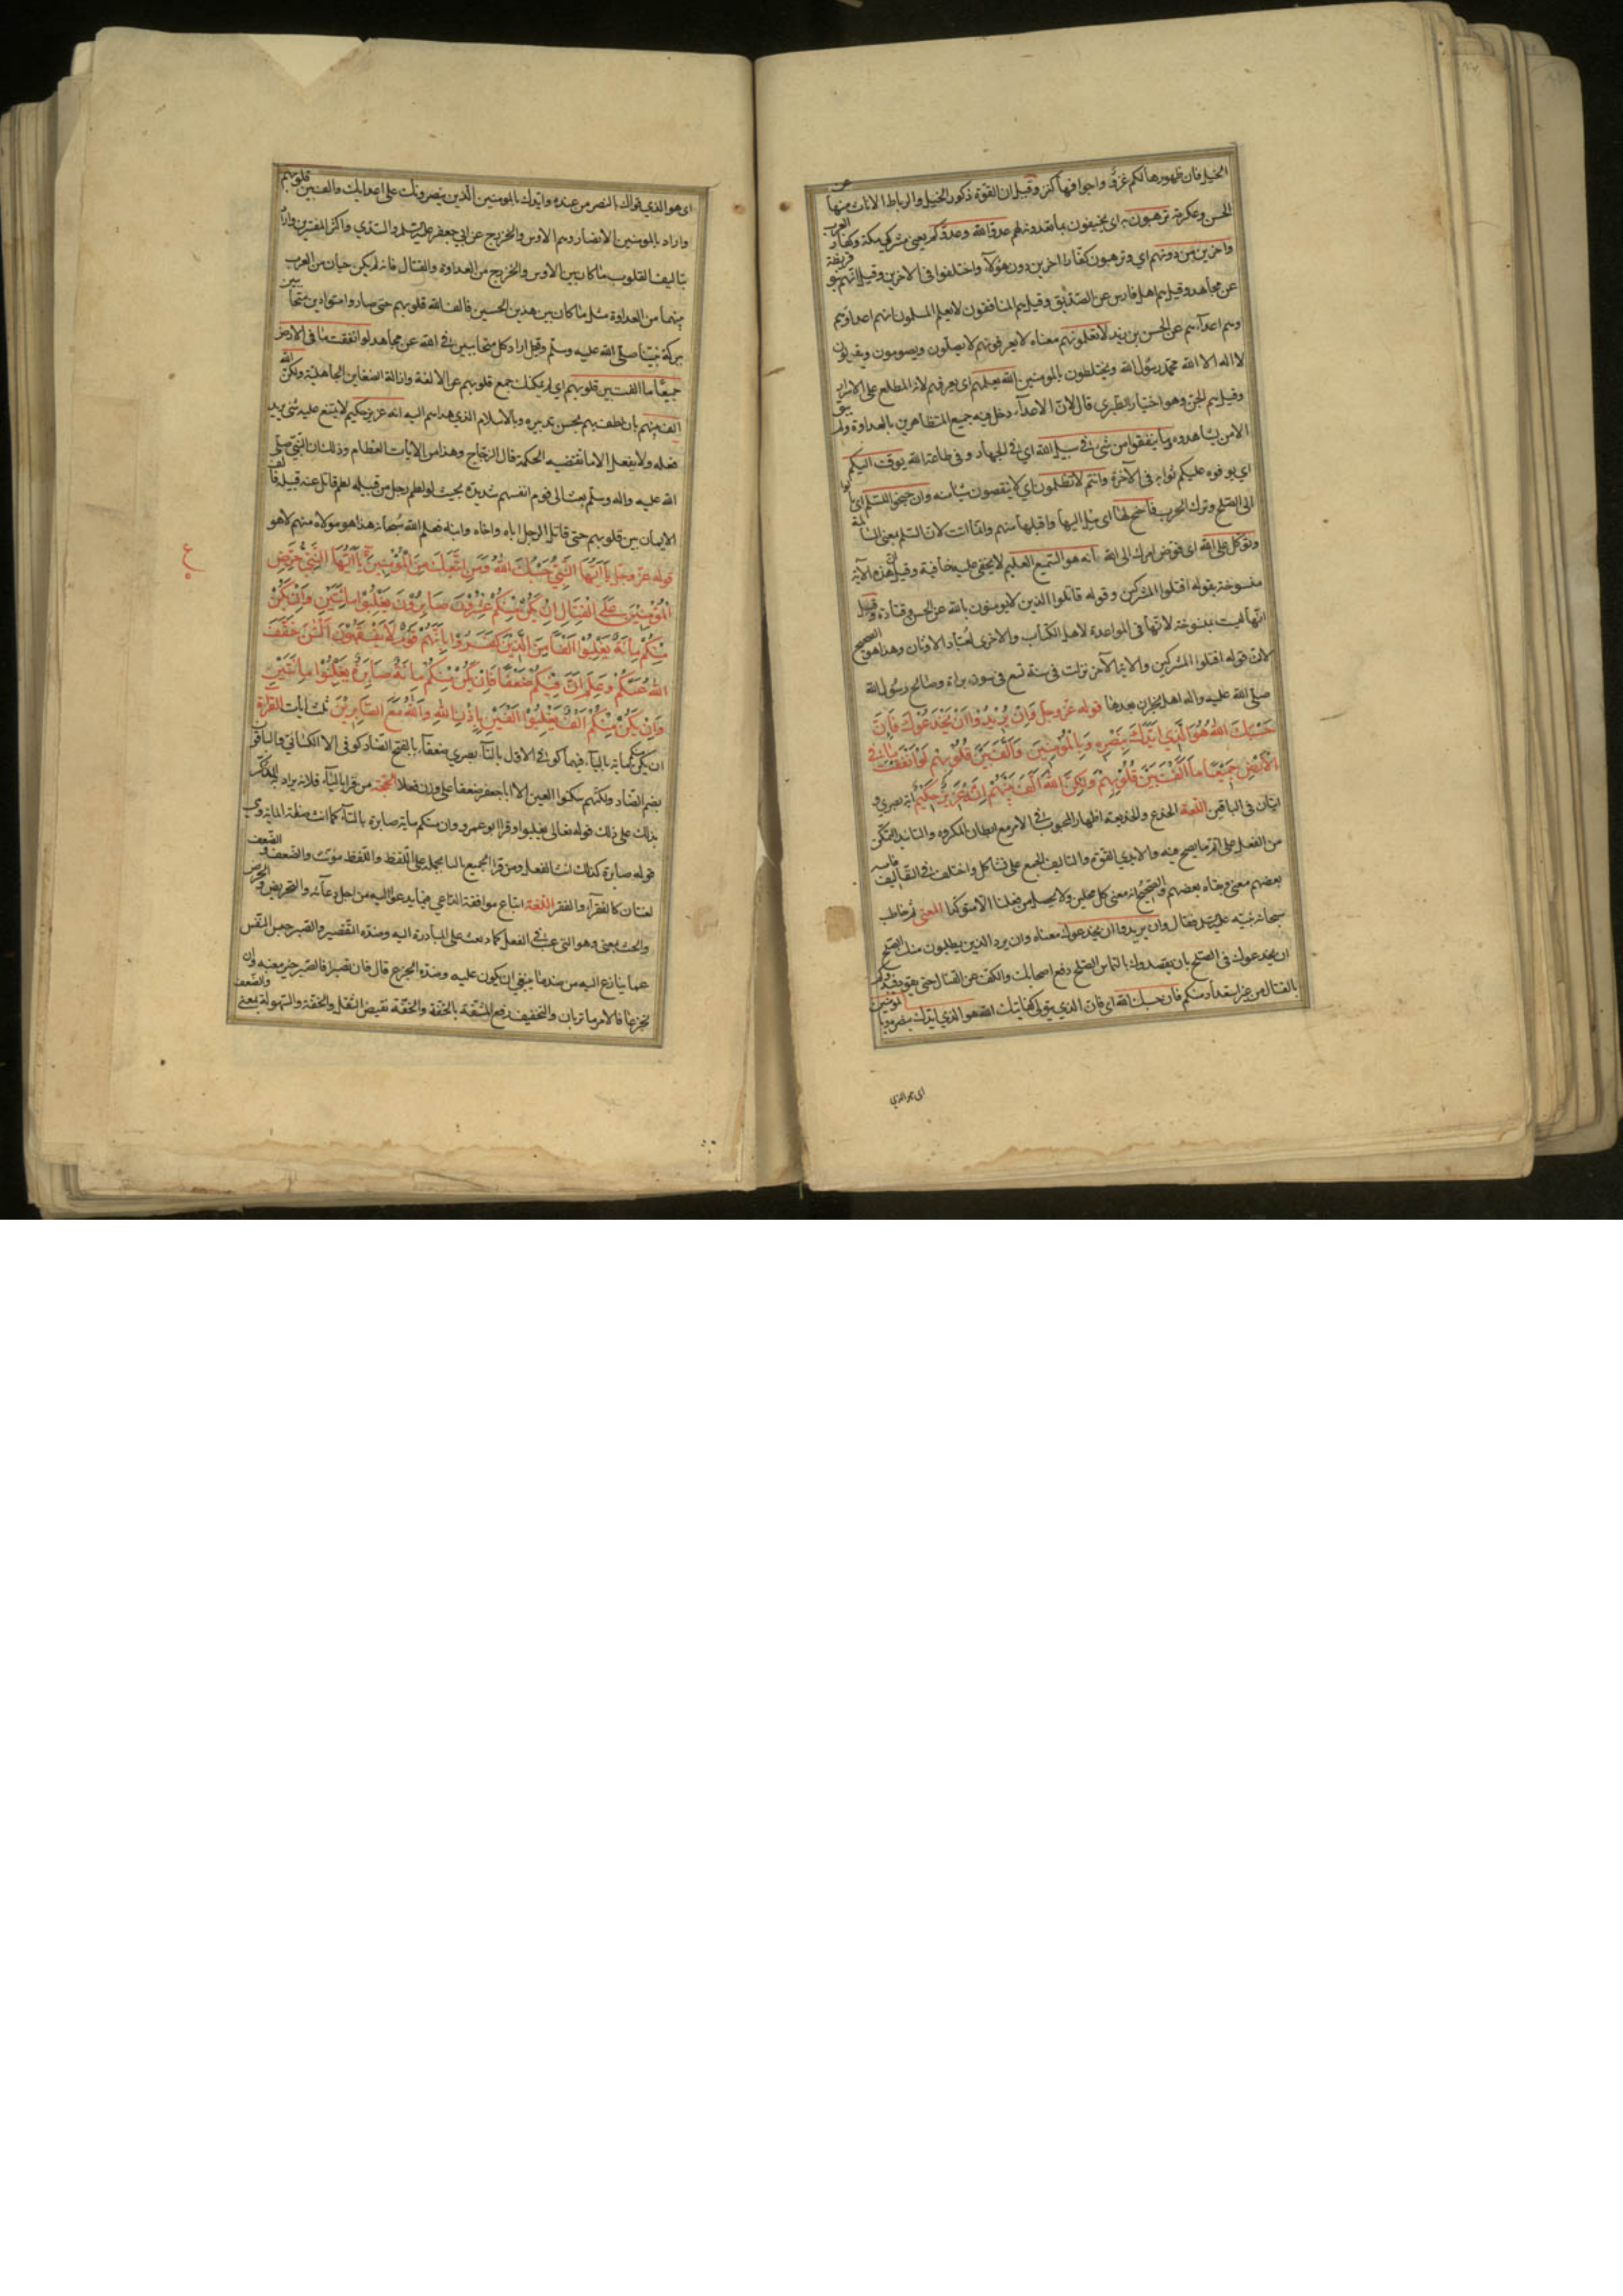 الخيل فان ظهورها لكم عز واجوافها كنز وقيل ان القوة ذكور الخيل والرباط الاناث منها عن
الحسن وعكرمة ترهبون به اى تخيفون بما تعدونه لهم عدو الله وعدوكم يعني مشركي مكة وكفار العرب
واخرين من دونهم اى وترهبون كفارا اخرين دون هؤلاء واختلفوا فى الاخرين وقيل انهم بنو قريظة
عن مجاهد وقيل هم اهل فارس عن السدي وقيل هم المنافقون لا يعلم المسلمون انهم اعداؤهم
وهم اعداءهم عن الحسن بن زيد لا تعلمونهم معناه لا يعرفونهم لانهم يصلون ويصومون ويقولون
لا اله الا الله محمد رسول الله ويختلطون بالمومنين الله يعلمهم اى يعرفهم لانه المطلع على الاسرار
وقيل هم الجن وهو اختيار الطبرى قال لان الاعداء دخل فيه جميع المتظاهرين بالعداوة ولم يبق
الا من يشاهدوه وما ينفقوا من شئ فى سبيل الله اى فى الجهاد وفى طاعة الله يوف اليكم
اى يوفره عليكم ثوابه فى الآخرة وانتم لا تظلمون اى لا ينقصون شيئا منه وان جنحوا للسلم اى مالوا
الى الصلح وترك الحرب فاجنح لها اى مل اليها واقبلها منهم وانما انت لان السلم بمعنى المسالمة
وتوكل على الله اى فوض امرك الى الله انه هو السميع العليم لا يخفى عليه خافية وقيل ان هذه الآية
منسوخة بقوله اقتلوا المشركين وقوله قاتلوا الذين لا يومنون بالله عن الحسن وقتادة وقيل
انها ليست بمنسوخة لانها فى المواعدة لاهل الكتاب والاخرى لعباد الاوثان وهذا هو الصحيح
لان قوله اقتلوا المشركين والاية الآخر نزلت فى سنة تسع فى سورة براءة وصالح رسول الله
صلى الله عليه واله اهل نجران بعدها قوله عز وجل وان يريدوا ان يخدعوك فان
حسبك الله هو الذى ايدك بنصره وبالمومنين والف بين قلوبهم لو انفقت ما فى
الارض جميعا ما الفت بين قلوبهم ولكن الله الف بينهم انه عزيز حكيم اية بصرى و
ايتان فى الباقين اللغة الخدع والخديعة اظهار المحبوب فى الامر مع ابطان المكروه والتاييد التمكن
من الفعل على اتم ما يصح فيه والايدى القوة والتاليف الجمع على تشاكل واختلف فى التاليف
بعضهم معنى ونفاه بعضهم والصحيح انه معنى كل محلين ولا يحصل من فعلنا الا متولدا المعنى ثم خاطب
سبحانه نبيه عليه السلم فقال وان يريدوا ان يخدعوك معناه وان يرد الذين يطلبون منك الصلح
ان يخدعوك فى الصلح بان يقصدوك بالتماس الصلح دفع اصحابك والكف عن القتال حتى يقوى
بالقتال من غير استعداد منكم فان حسبك الله اى فان الذى يتولى كفايتك الله هو الذى ايدك بنصره وبالمومنين
اى هو الذى
اى هو الذى قواك بالنصر من عنده وايدك بالمومنين الذين ينصرونك على اعدائك والف بين قلوبهم
واراد بالمومنين الانصار وهم الاوس والخزرج عن ابى جعفر عليه السلم والسدى واكثر المفسرين واراد
بتاليف القلوب ما كان بين الاوس والخزرج من العداوة والقتال فانه لم يكن حيان من العرب
بينهما من العداوة مثل ما كان بين هذين الحيين فالف الله قلوبهم حتى صاروا متوادين متحابين
ببركة نبينا صلى الله عليه وسلم وقيل اراد كل متحابين فى الله عن مجاهد لو انفقت ما فى الارض
جميعا ما الفت بين قلوبهم اى لم يمكنك جمع قلوبهم على الالفة وازالة الضغاين الجاهلية ولكن الله
الف بينهم بان لطف بهم بحسن تدبيره وبالاسلام الذى هداهم اليه انه عزيز حكيم لا يمتنع عليه شئ يريد
فعله ولا يفعل الا ما تقتضيه الحكمة قال الزجاج وهذا من الايات العظام وذلك ان النبى صلى
الله عليه واله وسلم بعث الى قوم انفسهم شديدة بحيث لو لطم رجل من قبيلة لطم قاتل عنه قبيلة فالف
الايمان بين قلوبهم حتى قاتل الرجل اباه واخاه وابنه فعلم الله سبحانه هذا هو مولاه منهم لا هو
قوله عز وجل يا ايها النبى حسبك الله ومن اتبعك من المومنين يا ايها النبى حرض
ع
المومنين على القتال ان يكن منكم عشرون صابرون يغلبوا مائتين وان يكن
منكم مائة يغلبوا الفا من الذين كفروا بانهم قوم لا يفقهون الئن خفف
الله عنكم وعلم ان فيكم ضعفا فان يكن منكم مائة صابرة يغلبوا مائتين
وان يكن منكم الف يغلبوا الفين باذن الله والله مع الصابرين ثلث ايات القراءة
ان يكن منكم مائة بالياء فيهما كوفى الاول بالتاء بصرى ضعفا بالفتح الضاد كوفى الا الكسائى والباقون
بضم الضاد وكلهم سكنوا العين الا ابا جعفر ضعفا على وزن فعلا الحجة من قرا بالياء فلانه يراد به المذكر
بذلك على ذلك قوله تعالى يغلبوا وقرا ابو عمرو وان منكم مائة صابرة بالتاء كما انث صفة المائة وهى
قوله صابرة كذلك انث الفعل ومن قرا الجميع بالتاء حمله على اللفظ واللفظ مونث والضعف والضعف
لغتان كالفقر والفقر اللغة اتباع موافقة الداعى فيما يدعو اليه من اجل دعائه والتحريض والحرض
والحث بمعنى وهو الترغيب فى الفعل بما يبعث على المبادرة اليه وضده التقصير والصبر حبس النفس
عما ينازع اليه من ضد ما ينبغى ان يكون عليه وضده الجزع قال فان تصبرا فالصبر خير مغبة وان
تجزعا فالامر ما تريان والتخفيف رفع المشقة بالخفة والخفة نقيض الثقل والخفة والسهولة بمعنى والضعف